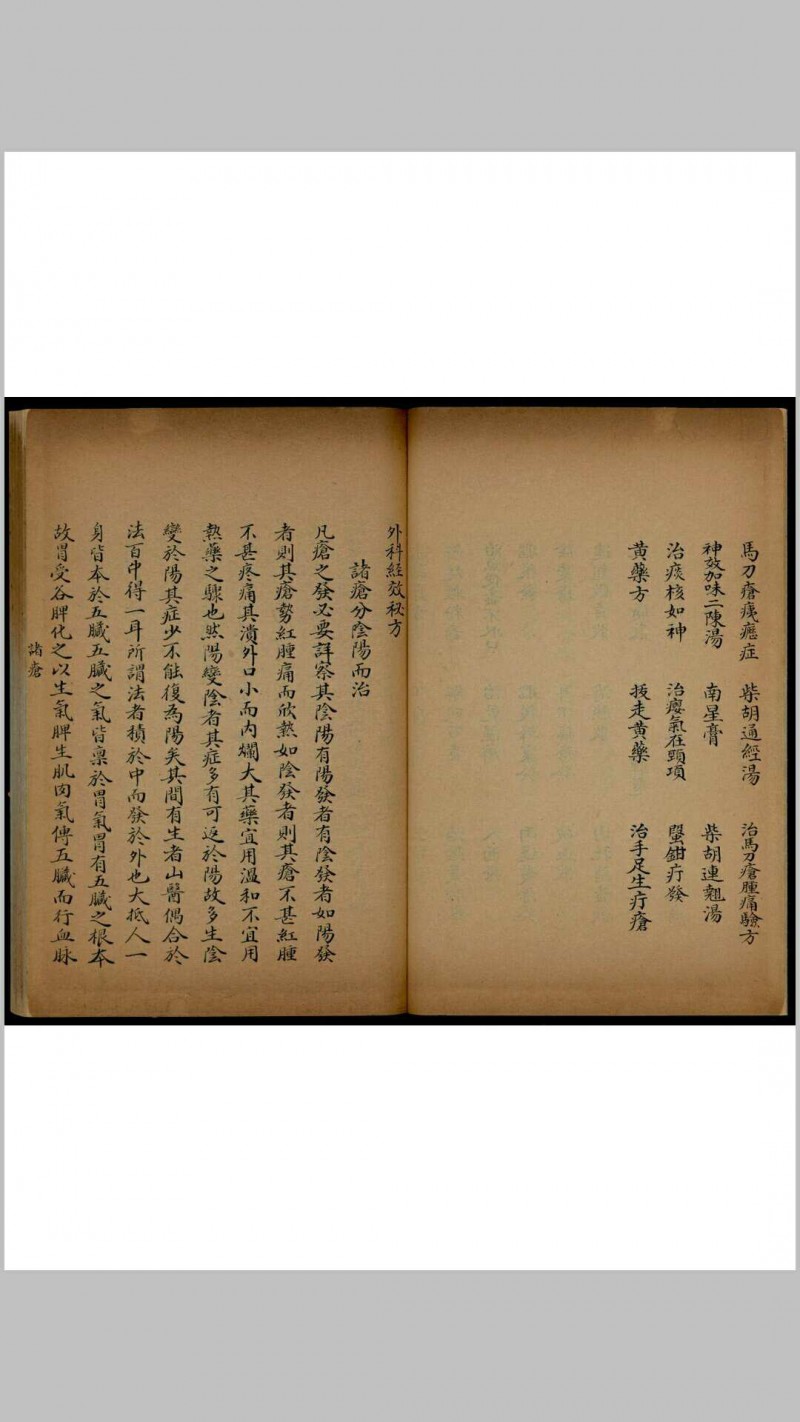 馬刀瘡痍癧症　柴胡通經湯　治馬刀瘡腫痛驗方
神效加味二陳湯　南星膏　柴胡連翹湯
治痰核如神　治癭氣在頸項　蜑鉗疔發
黄藥方　拔走黄藥　治手足生疔瘡
外科經效秘方
諸瘡分陰陽而治
凡瘡之發必要詳察其陰陽有陽發者有陰發者如陽發
者則其瘡勢紅腫痛而欣熱如陰發者則其瘡不甚紅腫
不甚疼痛其潰外口小而內爛大其藥宜用溫和不宜用
熱藥之驟也然陽變陰者其症多有可返於陽故多生陰
變於陽其症少不能復為陽矣其間有生者山醫偶合於
法百中得一耳所謂法者積於中而發於外也大抵人一
身皆本於五臟五臟之氣皆禀於胃氣胃有五臟之根本
故胃受谷脾化之以生氣脾生肌肉氣傳五臟而行血脉
諸瘡